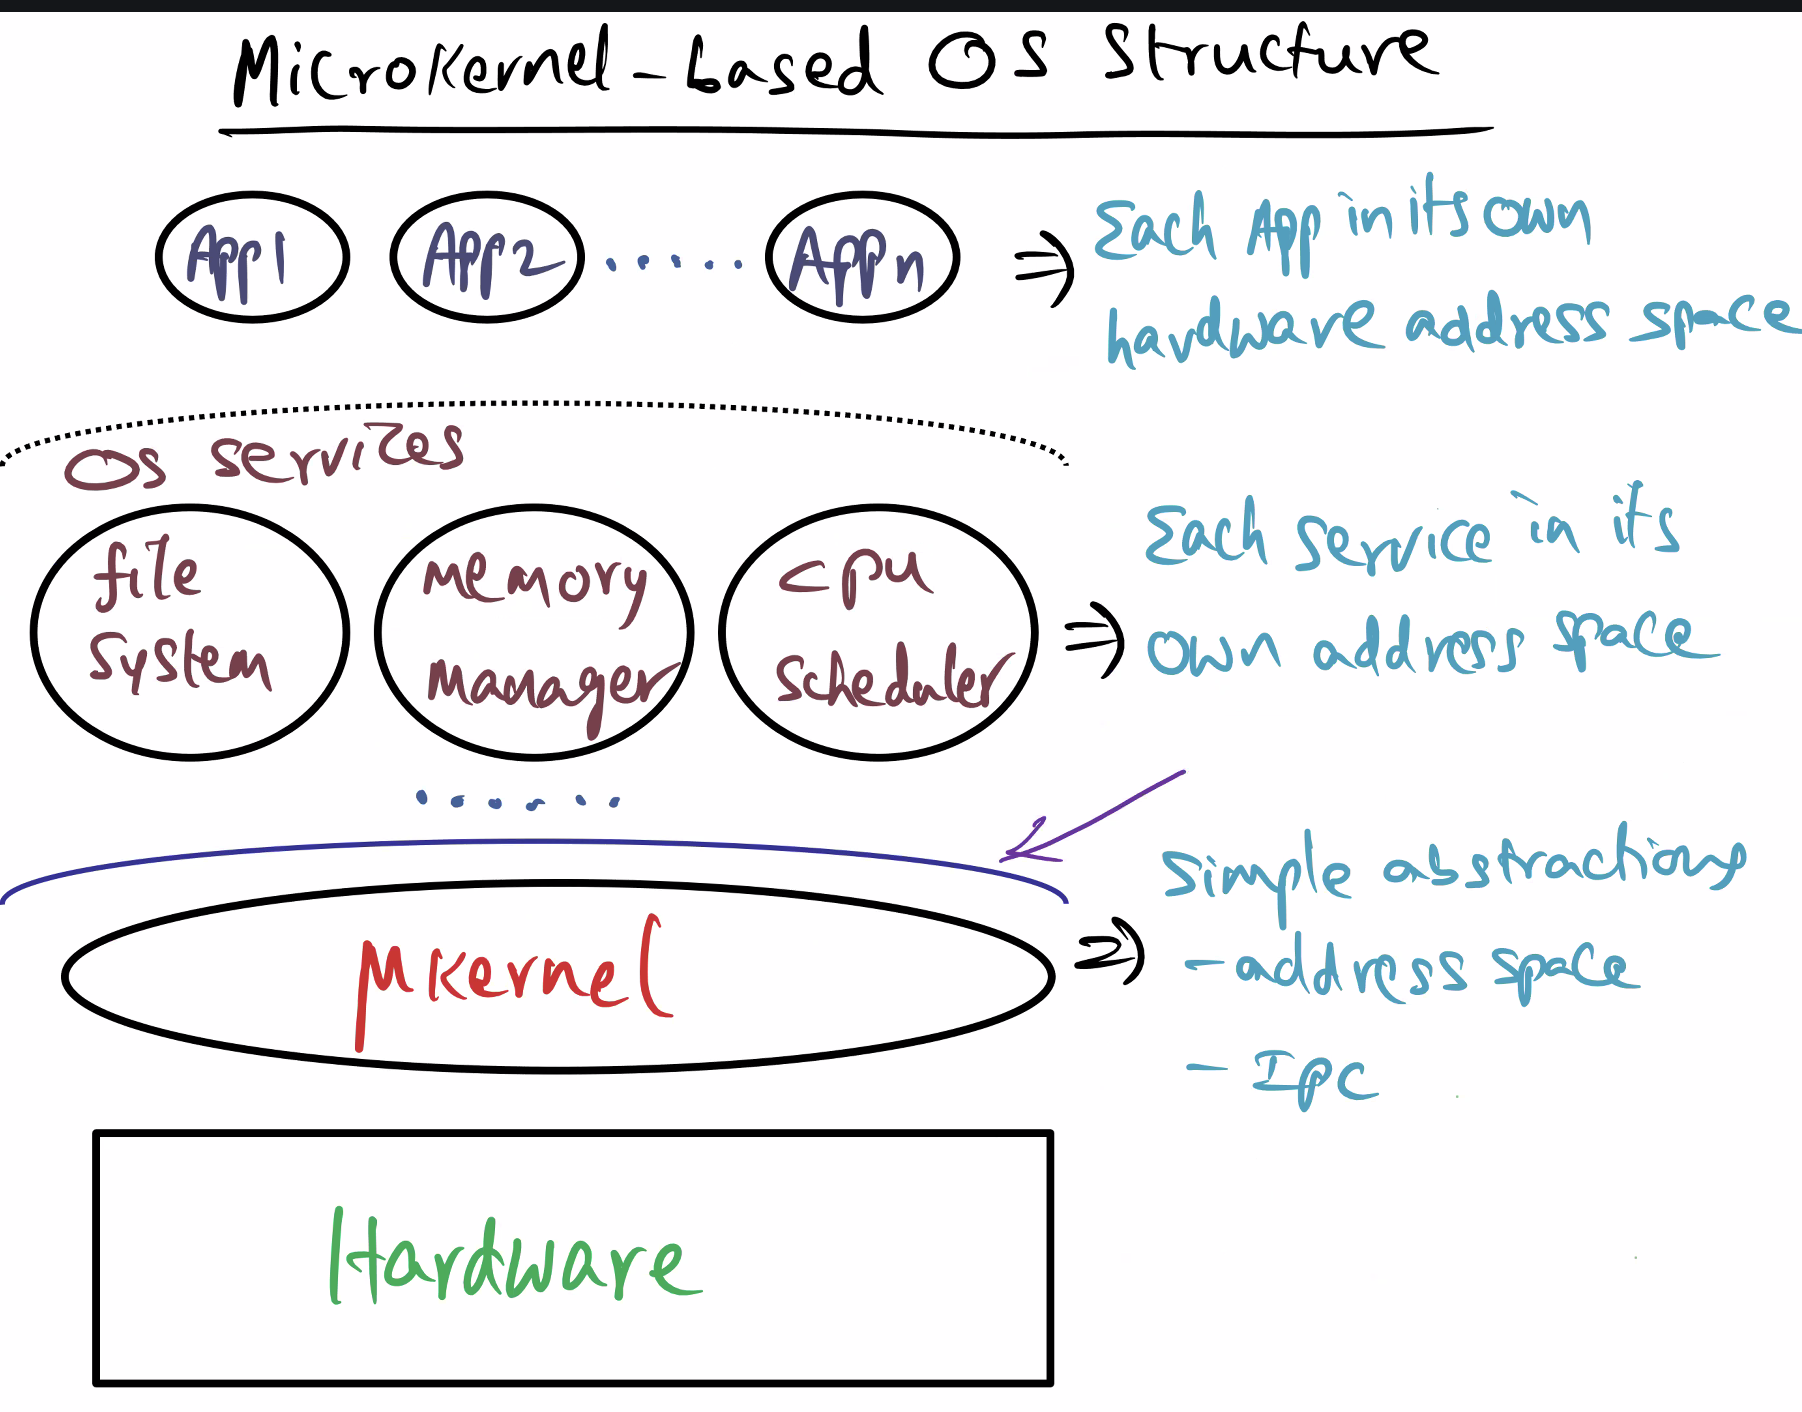 Microkernel-based OS Structure
App1 App2 ...... App n ⇒ Each App in its own
hardware address space
OS services
file system
memory manager
cpu scheduler
⇒ Each service in its
own address space
......
μkernel
⇒ Simple abstractions
- address space
- Ipc
Hardware